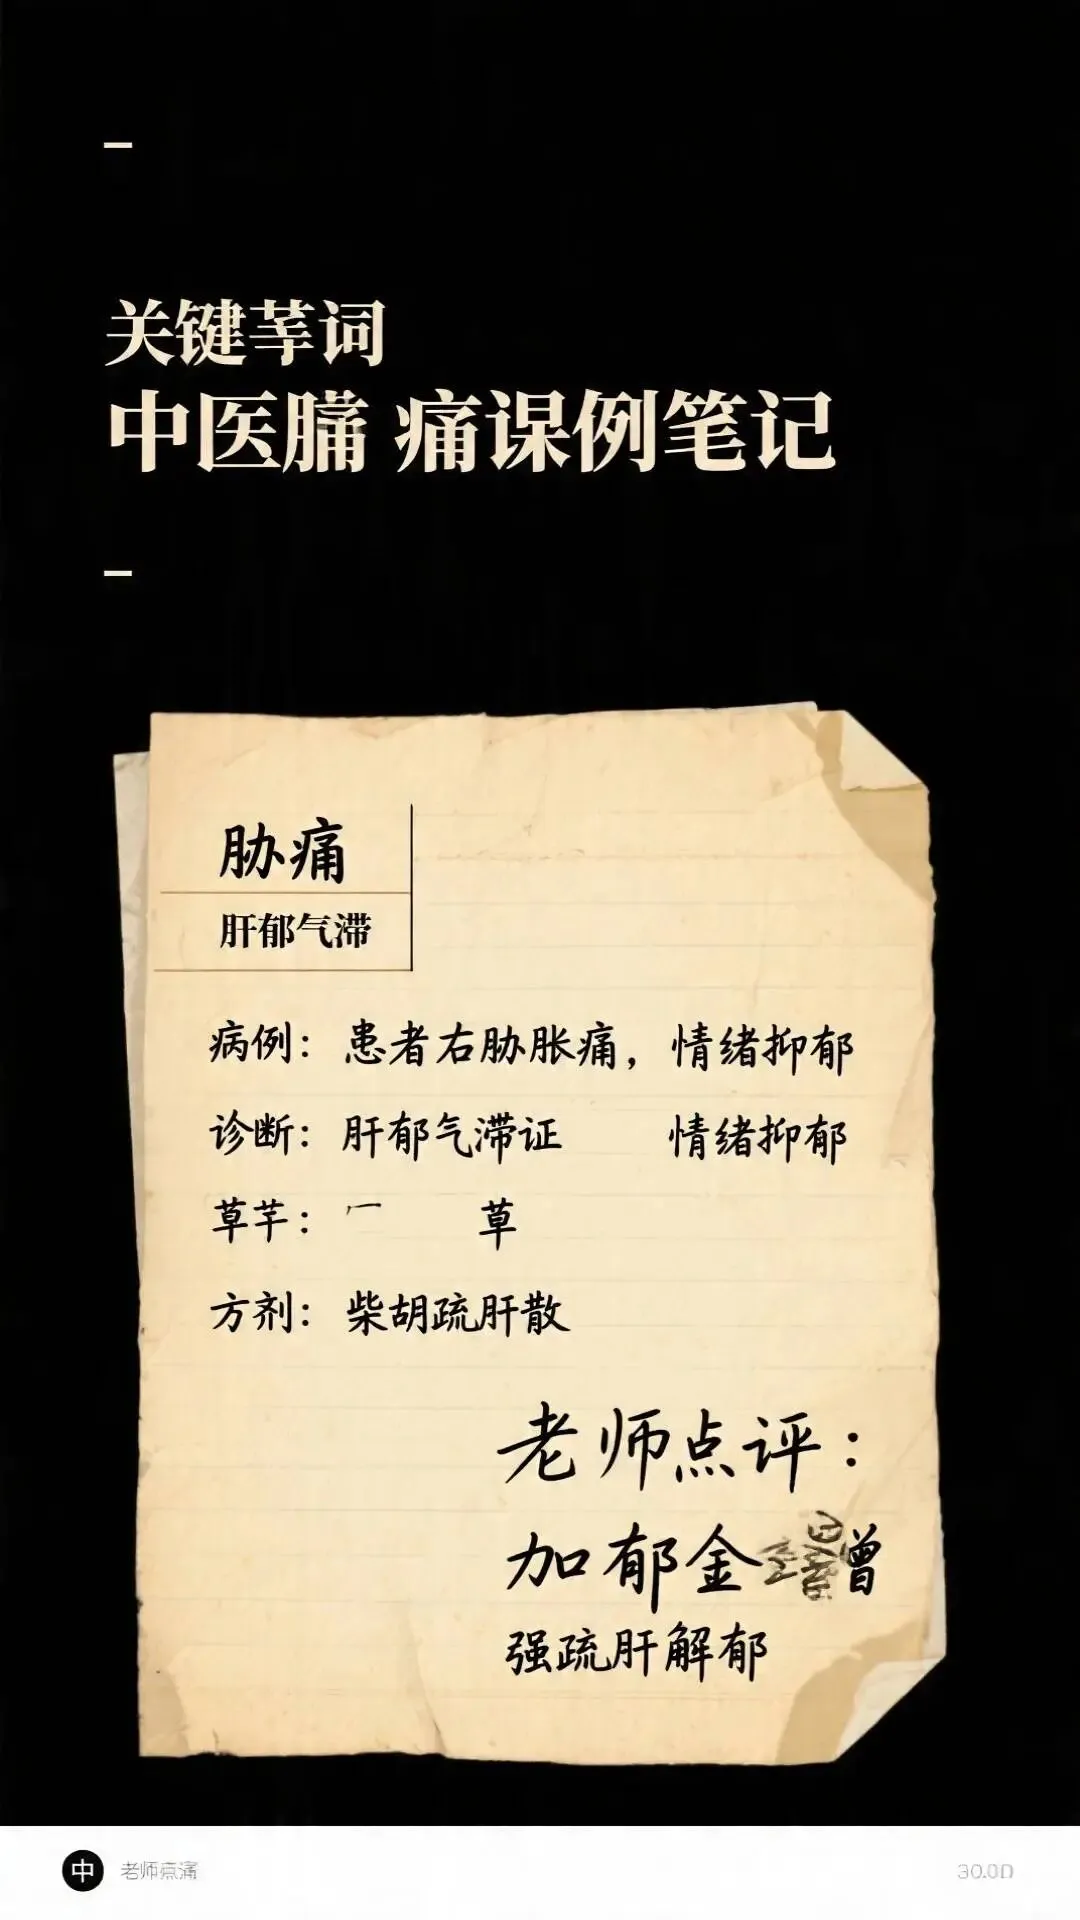 关键莘词
中医 痛课例笔记
胁痛
肝郁气滞
病例：患者右胁胀痛，情绪抑郁
诊断：肝郁气滞证 情绪抑郁
草芉： 草
方剂：柴胡疏肝散
老师点评：
加郁金 增
强疏肝解郁
中 老师点
30.0D